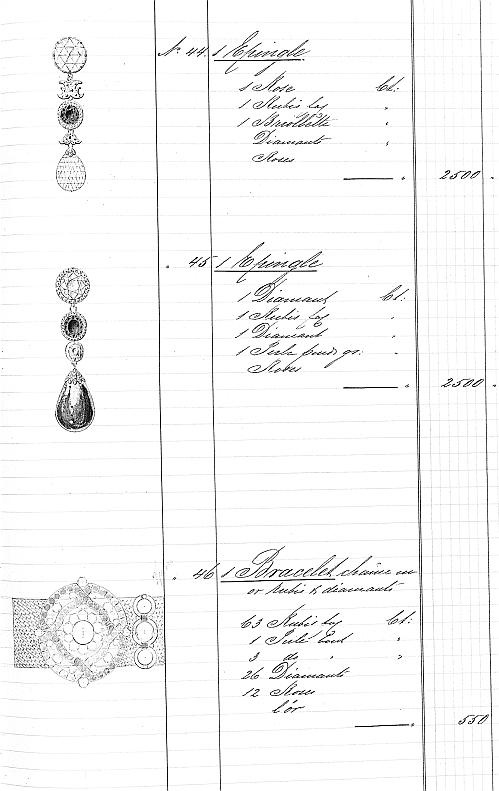 N. 44. 1 Epingle.
1 Rose Ct:
1 Rubis
1 Briollette "
Diamants "
Roses
2500 "
" 45 1 Epingle
1 Diamant Ct:
1 Rubis "
1 Diamant "
1 Perle gr: "
Roses
2500 "
" 46 1 Bracelet chaîne en
or rubis & diamants
63 Rubis Ct:
1 Perle "
3 do "
26 Diamants
12 Roses
l'or
550